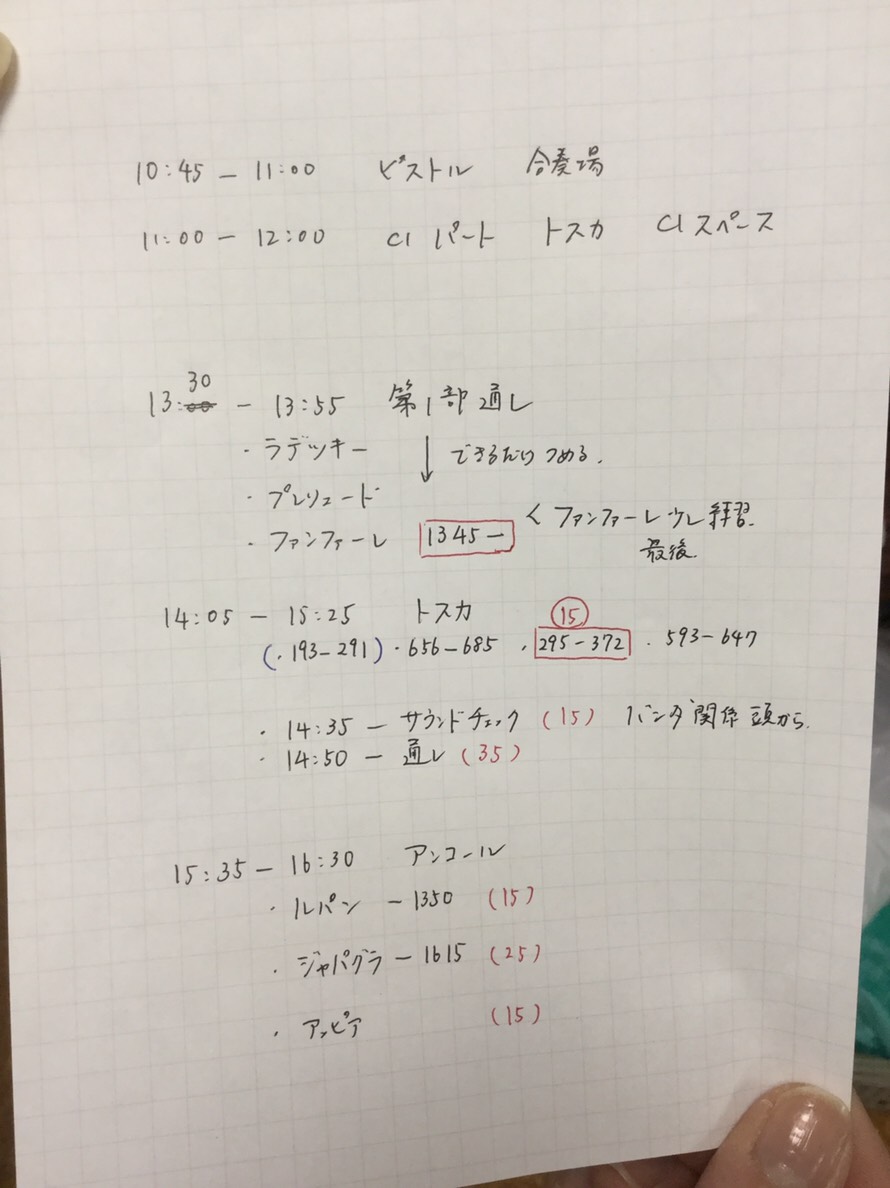 10:45 － 11:00 ピストル 合奏場
11:00 － 12:00 Cl パート トスカ Cl スペース
30
13:00 － 13:55 第1部通し
・ラデッキー ↓ できるだけつめる.
・プレリュード
・ファンファーレ 1345－ < ファンファーレ少し練習.
最後.
14:05 － 15:25 トスカ 15
(・193－291)・656－685 ・295－372 ・593－647
・14:35 － サウンドチェック (15) バンダ関係頭から.
・14:50 － 通し (35)
15:35 － 16:30 アンコール
・ルパン －1350 (15)
・ジャパグラ －1615 (25)
・アッピア (15)